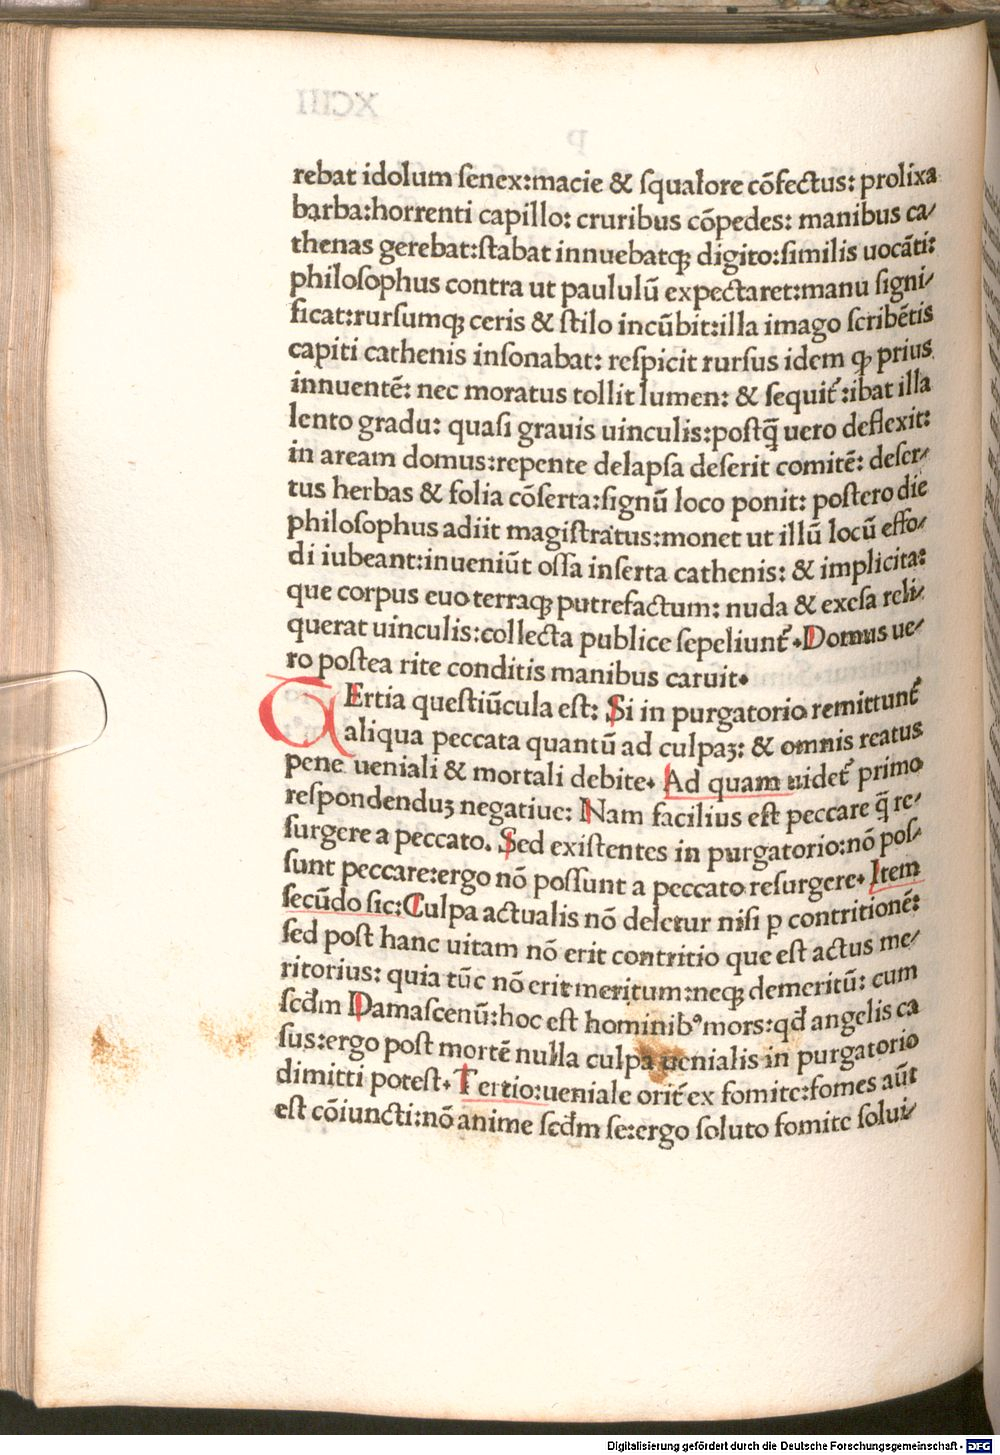 rebat idolum ſenex:macie & ſqualore cõfectus: prolixa
barba:horrenti capillo: cruribus cõpedes: manibus ca⸗
thenas gerebat:ſtabat innuebatqꝫ digito:ſimilis uocãti:
philoſophus contra ut paululũ expectaret:manu ſigni⸗
ficat:rurſumqꝫ ceris & ſtilo incũbit:illa imago ſcribẽtis
capiti cathenis inſonabat: reſpicit rurſus idem qꝫ prius
innuentẽ: nec moratus tollit lumen: & ſequit᷑:ibat illa
lento gradu: quaſi grauis uinculis:poſtq̃ uero deflexit:
in aream domus:repente delapſa deſerit comitẽ: deſer⸗
tus herbas & folia cõſerta:ſignũ loco ponit: poſtero die
philoſophus adiit magiſtratus:monet ut illũ locũ effo⸗
di iubeant:inueniũt oſſa inſerta cathenis: & implicita:
que corpus euo terraqꝫ putrefactum: nuda & exeſa reli⸗
querat uinculis:collecta publice ſepeliunt᷑. Domus ue⸗
ro poſtea rite conditis manibus caruit.
TErtia queſtiũcula eſt: Si in purgatorio remittunt᷑
aliqua peccata quantũ ad culpaꝫ: & omnis reatus
pene ueniali & mortali debite. Ad quam uidet᷑ primo
reſpondenduꝫ negatiue: Nam facilius eſt peccare q̃ re⸗
ſurgere a peccato. Sed exiſtentes in purgatorio:nõ poſ⸗
ſunt peccare:ergo nõ poſſunt a peccato reſurgere. Item
ſecũdo ſic:Culpa actualis nõ deletur niſi ꝑ contritionẽ:
ſed poſt hanc uitam nõ erit contritio que eſt actus me⸗
ritorius: quia tũc nõ erit meritum:neqꝫ demeritũ: cum
ſecđm Damaſcenũ:hoc eſt hominibꝰ mors:qđ angelis ca
ſus:ergo poſt mortẽ nulla culpa uenialis in purgatorio
dimitti poteſt. Tertio:ueniale orit᷑ ex fomite:fomes aũt
eſt cõiuncti:nõ anime ſecđm ſe:ergo ſoluto fomite ſolui⸗
Digitalisierung gefördert durch die Deutsche Forschungsgemeinschaft - DFG